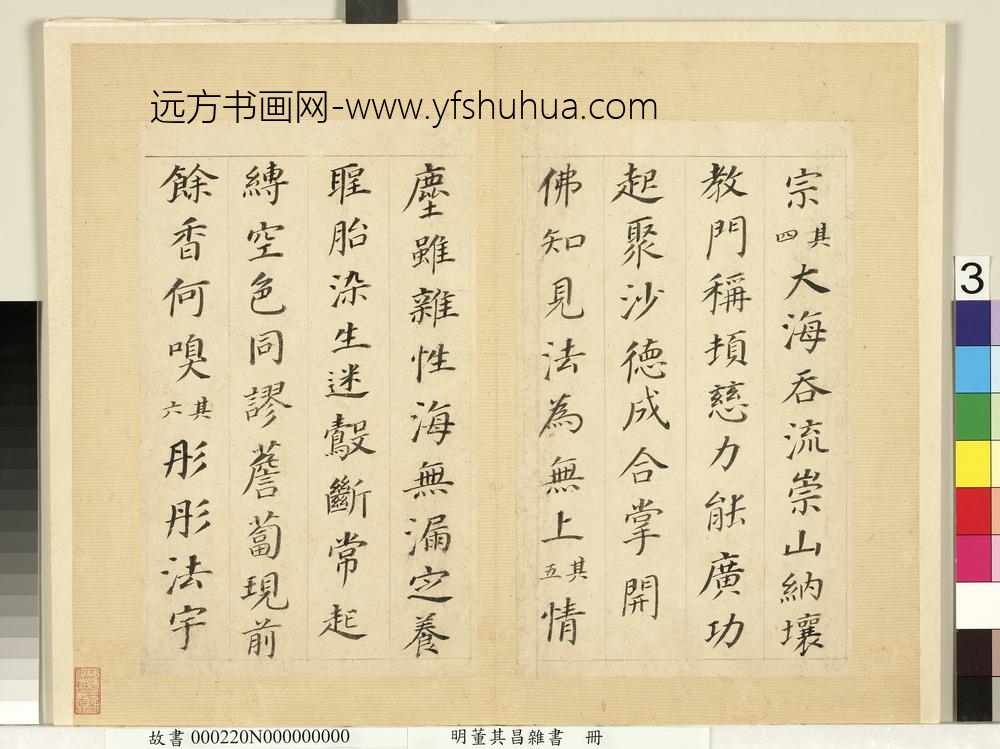 远方书画网-www.yfshuhua.com
宗其四大海吞流崇山納壤
教門稱頓慈力能廣功
起聚沙德成合掌開
佛知見法為無上其五情
塵雖雜性海無漏定養
聖胎染生迷鷇斷常起
縛空色同謬薝蔔現前
餘香何嗅其六彤彤法宇
3
故書 000220N000000000 明董其昌雜書 冊